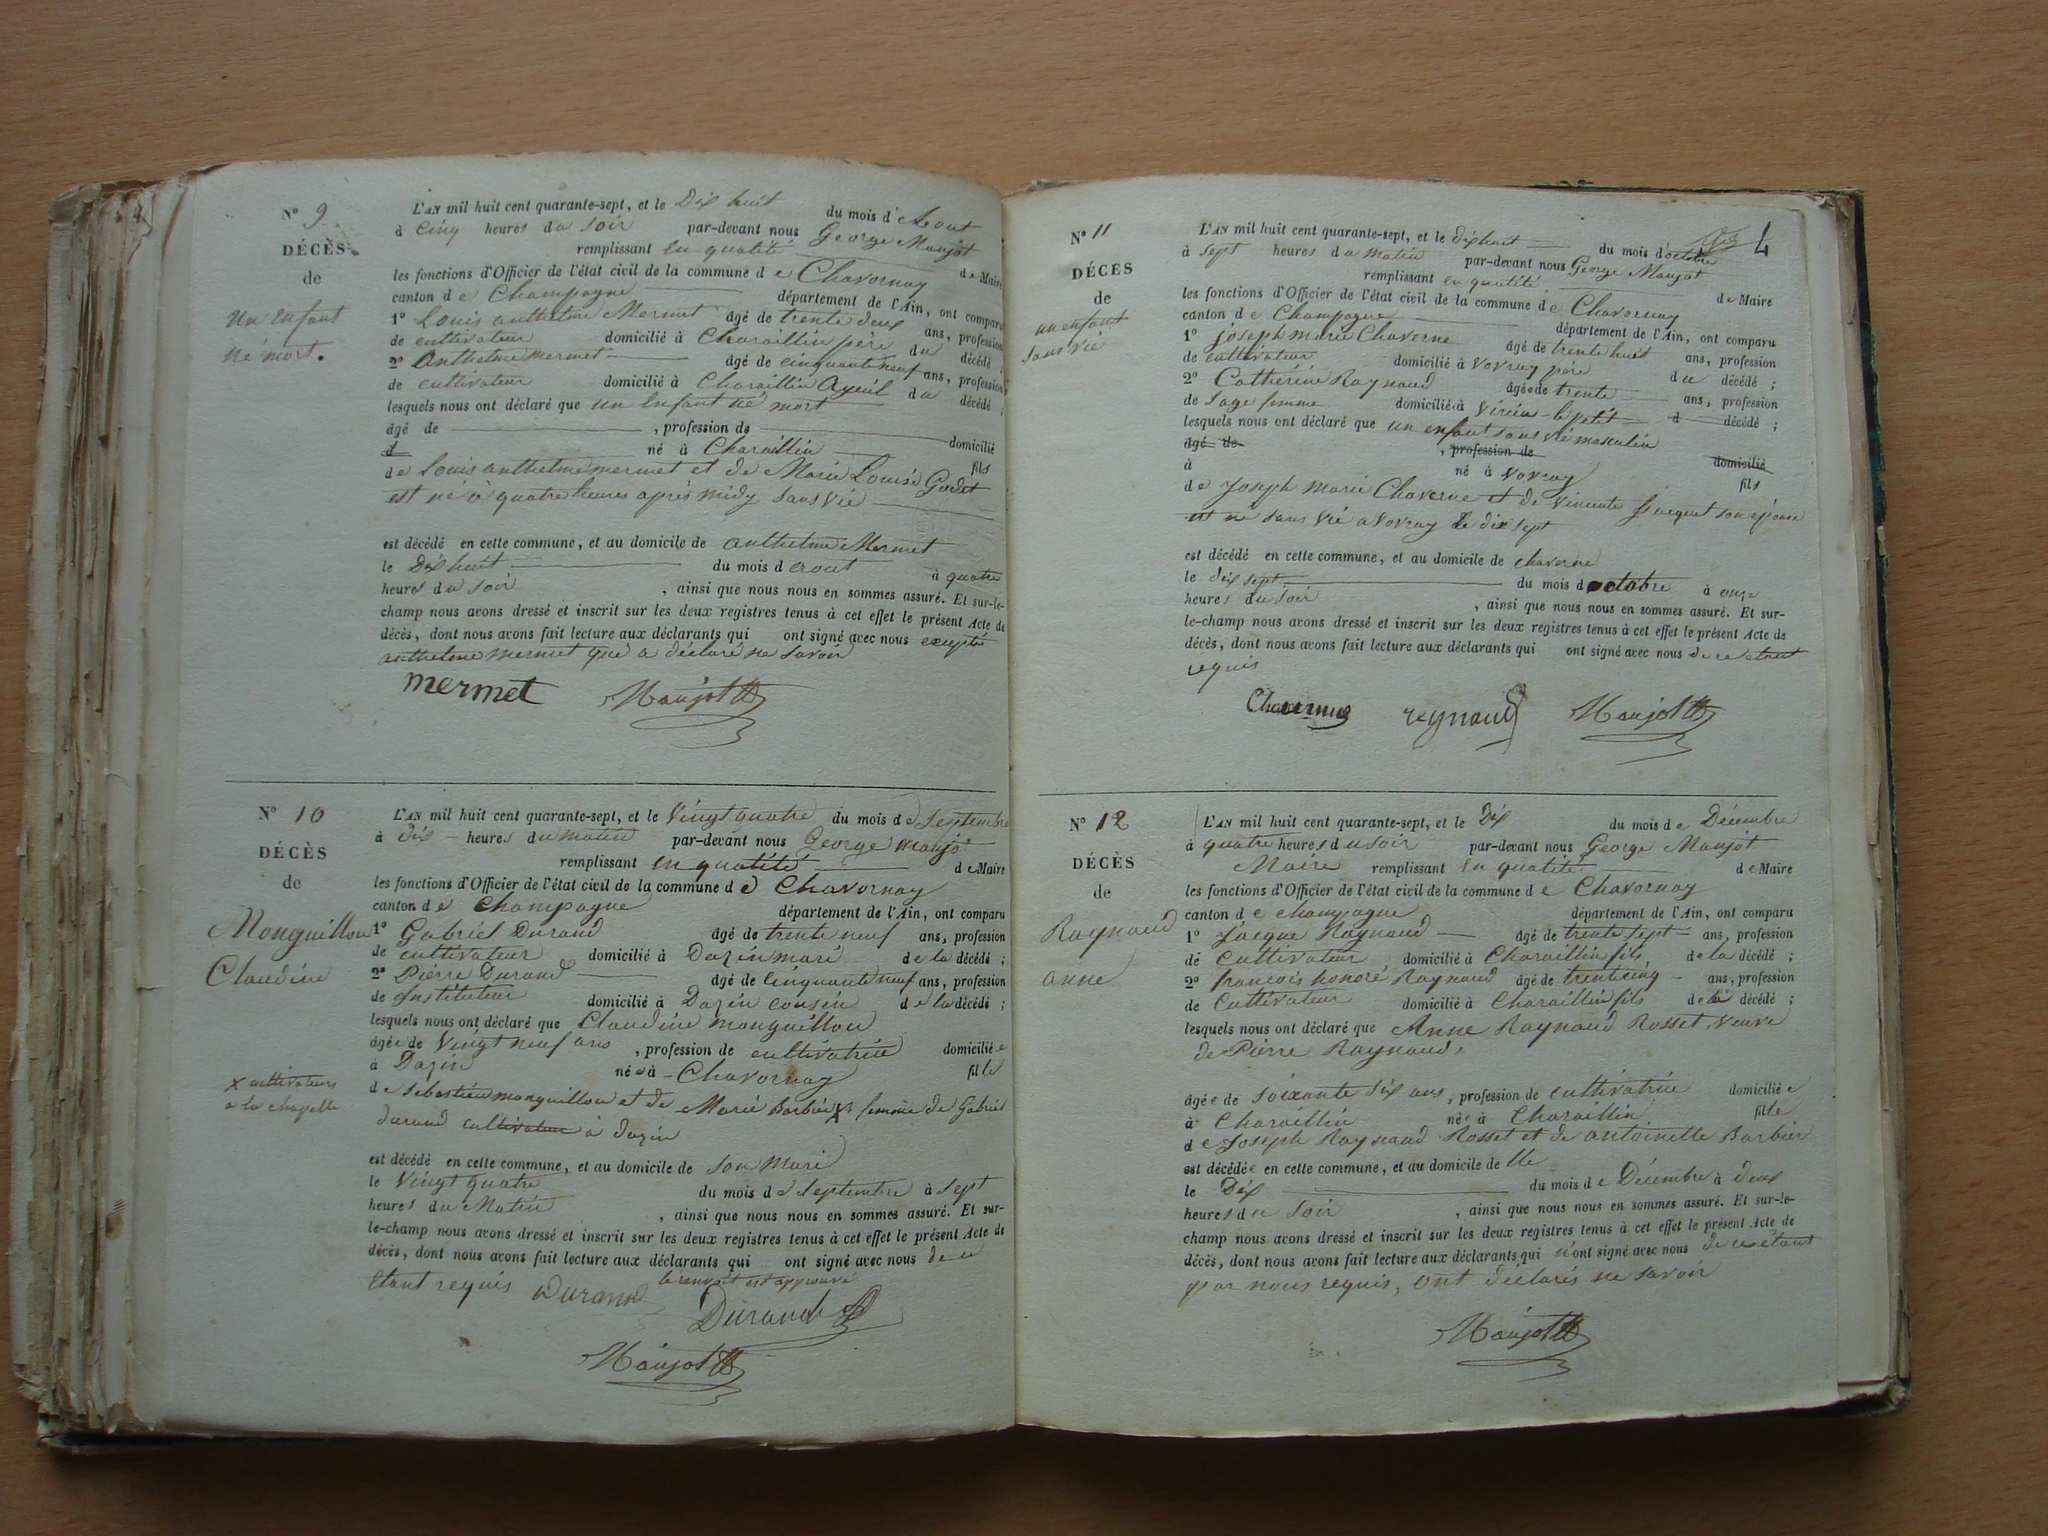 N° 9
DÉCÈS
de
un Enfant
né mort.
L'AN mil huit cent quarante-sept, et le Dix huit du mois d'Aout
à Cinq heures du Soir par-devant nous George Maujot
remplissant en qualité de Maire
les fonctions d'Officier de l'état civil de la commune de Chavornay
canton de Champagne département de l'Ain, ont comparu
1° Louis anthelme Mermet âgé de trente deux ans, profession
de cultivateur domicilié à Charaillin père du décédé ;
2° Anthelme mermet âgé de cinquante neuf ans, profession
de cultivateur domicilié à Charaillin Ayeul du décédé ;
lesquels nous ont déclaré que un Enfant né mort
âgé de , profession de domicilié
d né à Charaillin fils
de Louis anthelme mermet et de Marie Louise Godet
est né à quatre heures après midy sans vie
est décédé en cette commune, et au domicile de anthelme Mermet
le Dix huit du mois d'aout à quatre
heures du soir , ainsi que nous nous en sommes assuré. Et sur-le-
champ nous avons dressé et inscrit sur les deux registres tenus à cet effet le présent Acte de
décès, dont nous avons fait lecture aux déclarants qui ont signé avec nous excepté
anthelme mermet que a déclaré ne savoir
mermet Maujot
N° 10
DÉCÈS
de
Monguillon
Claudine
x cultivateurs
a la chapelle
L'AN mil huit cent quarante-sept, et le Vingt quatre du mois de Septembre
à dix heures du matin par-devant nous George Maujot
remplissant en qualité de Maire
les fonctions d'Officier de l'état civil de la commune de Chavornay
canton de Champagne département de l'Ain, ont comparu
1° Gabriel Durand âgé de trente neuf ans, profession
de cultivateur domicilié à Dazin mari de la décédé ;
2° Pierre Durand âgé de Cinquante neuf ans, profession
de Instituteur domicilié à Dazin cousin de la décédé ;
lesquels nous ont déclaré que Claudine monguillon
âgée de Vingt neuf ans , profession de cultivatrice domiciliée
à Dazin née à Chavornay fille
de Sebastien monguillon et de Marie Barbier x femme de Gabriel
durand cultivateur à dazin
est décédé en cette commune, et au domicile de Son Mari
le Vingt quatre du mois de septembre à sept
heures du Matin , ainsi que nous nous en sommes assuré. Et sur-
le-champ nous avons dressé et inscrit sur les deux registres tenus à cet effet le présent Acte de
décès, dont nous avons fait lecture aux déclarants qui ont signé avec nous de ce
Etant requis le renvoit est approuvé
Durand Durand
Maujot
4
N° 11
DÉCÈS
de
un enfant
sans vie
L'AN mil huit cent quarante-sept, et le dixhuit du mois d'octobre
à sept heures du matin par-devant nous George Maujot
remplissant en qualité de Maire
les fonctions d'Officier de l'état civil de la commune de Chavornay
canton de Champagne département de l'Ain, ont comparu
1° joseph marie Chaverne âgé de trente huit ans, profession
de cultivateur domicilié à Vovray père du décédé ;
2° Cathérine Raynaud âgée de trente ans, profession
de Sage femme domiciliée à Virieu-le petit d décédé ;
lesquels nous ont déclaré que un enfant sans vie masculin
âgé de , profession de domicilié
à né à Vovray fils
de Joseph Marie Chaverne et de Vincente son épouse
est né sans vie a Vovray le dix sept
est décédé en cette commune, et au domicile de chaverne
le dix sept du mois d octobre à onze
heures du soir , ainsi que nous nous en sommes assuré. Et sur-
le-champ nous avons dressé et inscrit sur les deux registres tenus à cet effet le présent Acte de
décès, dont nous avons fait lecture aux déclarants qui ont signé avec nous de ce etant
requis
Chaverne reynaud Maujot
N° 12
DÉCÈS
de
Raynaud
anne
L'AN mil huit cent quarante-sept, et le Dix du mois de Décembre
à quatre heures du soir par-devant nous George Maujot
Maire remplissant En qualité de Maire
les fonctions d'Officier de l'état civil de la commune de Chavornay
canton de champagne département de l'Ain, ont comparu
1° Jacque Raynaud âgé de trente sept ans, profession
de Cultivateur domicilié à Charaillin fils de la décédé ;
2° francois honoré Raynaud âgé de trentecinq ans, profession
de Cultivateur domicilié à Charaillin fils de la décédé ;
lesquels nous ont déclaré que Anne Raynaud Rosset, veuve
de Pierre Raynaud,
âgée de soixante dix ans , profession de cultivatrice domiciliée
à Charaillin née à Charaillin fille
de Joseph Raynaud Rosset et de antoinette Barbier
est décédée en cette commune, et au domicile de Elle
le Dix du mois de Décembre à deux
heures du soir , ainsi que nous nous en sommes assuré. Et sur-le-
champ nous avons dressé et inscrit sur les deux registres tenus à cet effet le présent Acte de
décès, dont nous avons fait lecture aux déclarants qui n'ont signé avec nous de ce étant
par nous requis, ont déclarés ne savoir
Maujot